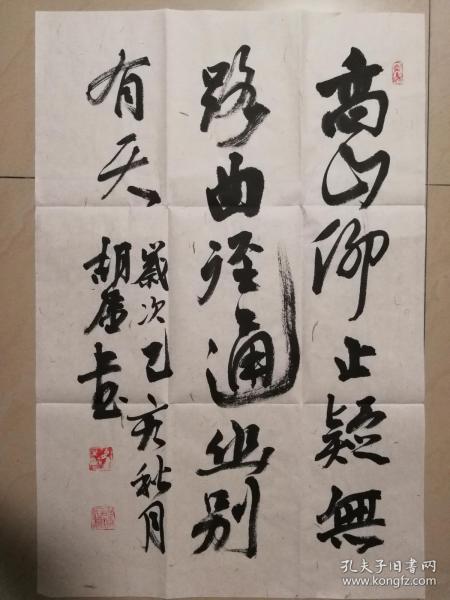 高山仰止疑無
路曲径通幽别
有天
歲次己亥秋月
胡
孔夫子旧书网
www.kongfz.com